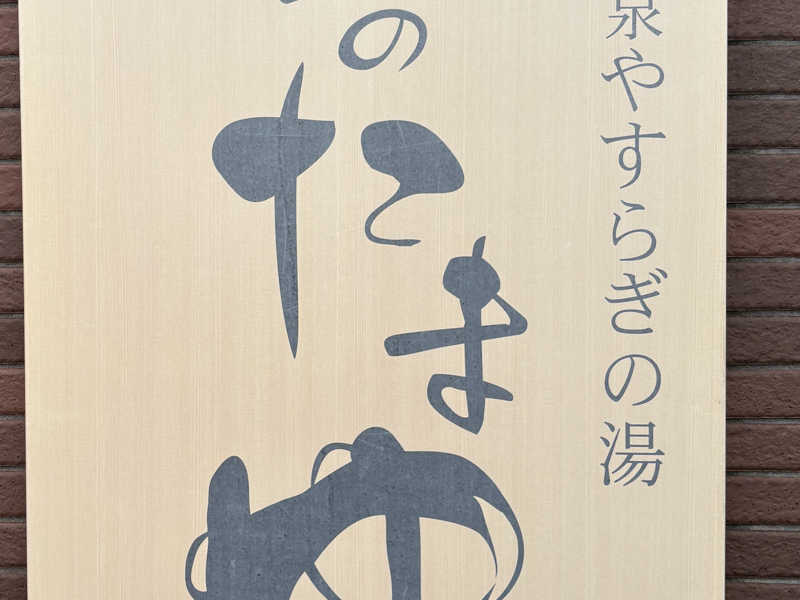 泉やすらぎの湯
のたまゆ